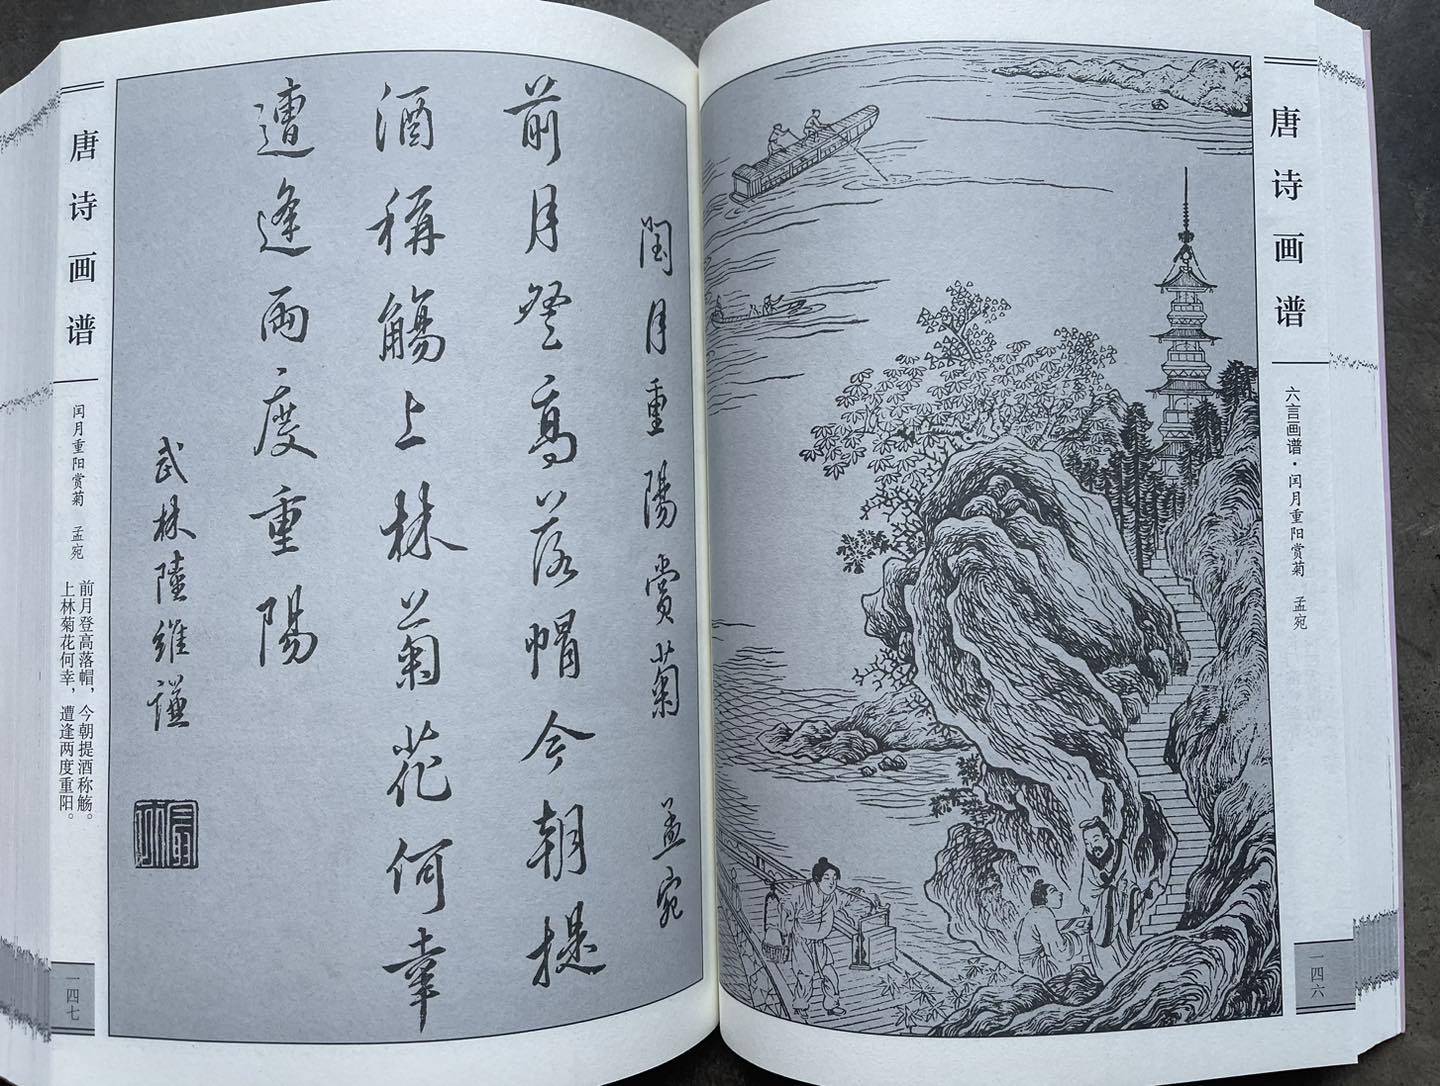 唐诗画谱
六言画谱·闰月重阳赏菊 孟宛
一四六
閏月重陽賞菊 孟宛
前月登高落帽今朝提
酒稱觴上林菊花何幸
遭逢兩度重陽
武林陸維謙
唐诗画谱
闰月重阳赏菊 孟宛
前月登高落帽，今朝提酒称觞。
上林菊花何幸，遭逢两度重阳。
一四七